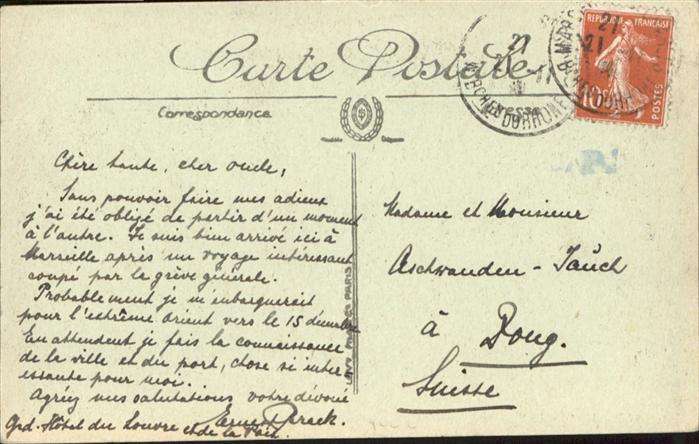 Carte Postale
Correspondance
Adresse
RÉPUBLIQUE FRANÇAISE
10
POSTES
BOUCHES DU RHONE
Chère tante, cher oncle,
Sans pouvoir faire mes adieux
j'ai été obligé de partir d'un moment
à l'autre. Je suis bien arrivé ici à
Marseille après un voyage intéressant
coupé par le grève générale.
Probablement je m'embarquerait
pour l'extrême orient vers le 15 décembre
En attendent je fais la connaissance
de la ville et du port, chose si inter-
essante pour moi.
Agréz mes salutations votre dévoué
Ernest
Grd. Hôtel du Louvre et de la Paix.
LEVY FILS & CIE PARIS
Madame et Monsieur
Aschwanden - Jauch
à Zoug.
Suisse